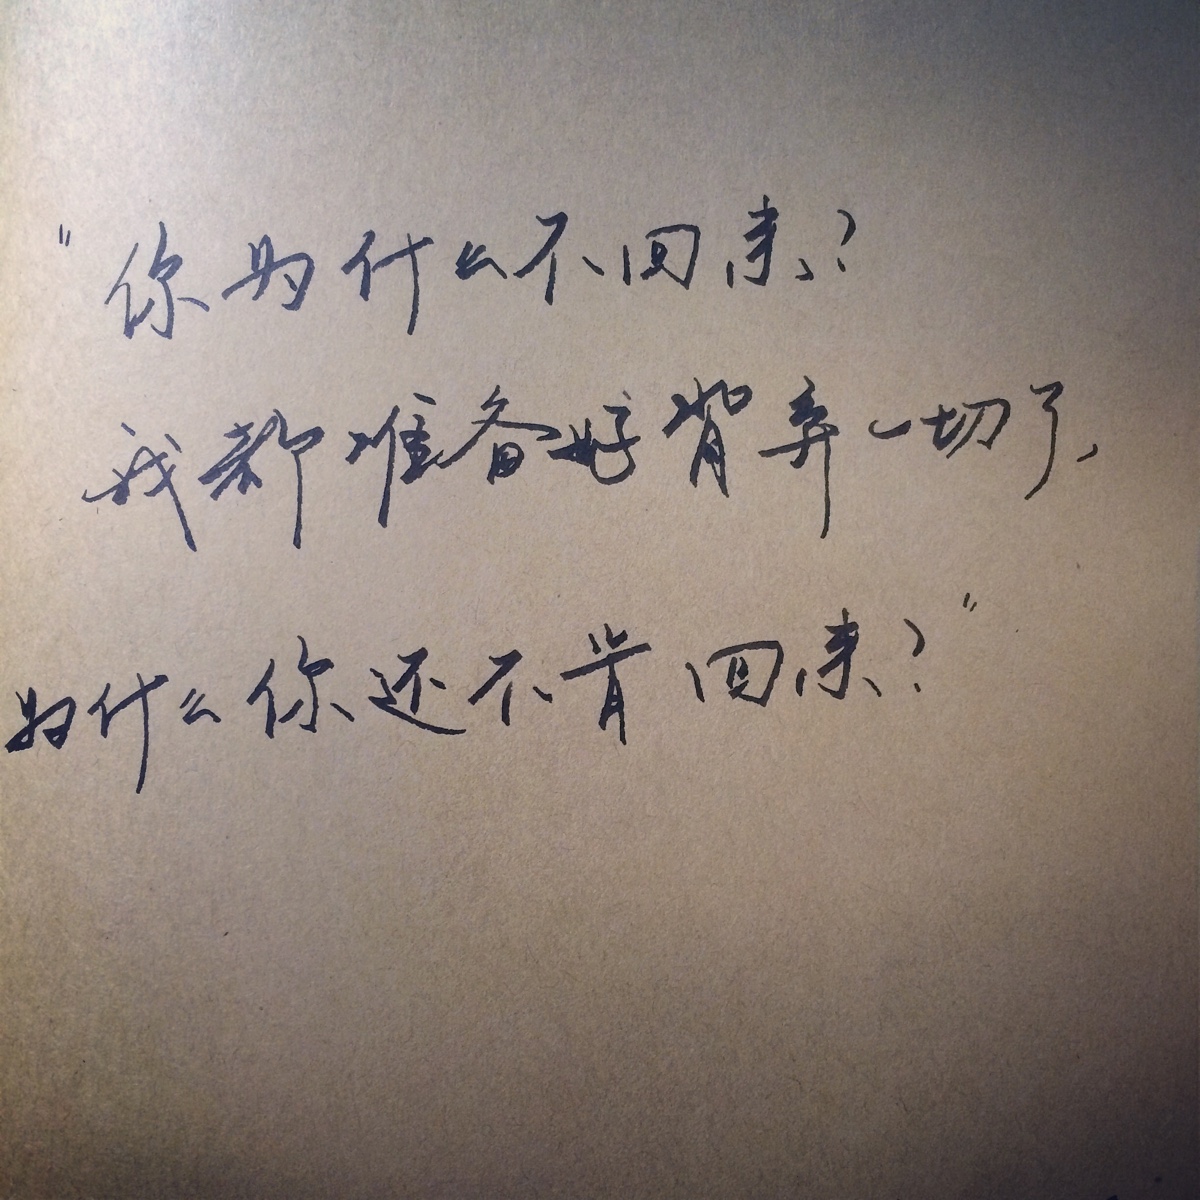 "你为什么不回来?
我都准备好背弃一切了,
为什么你还不肯回来?"